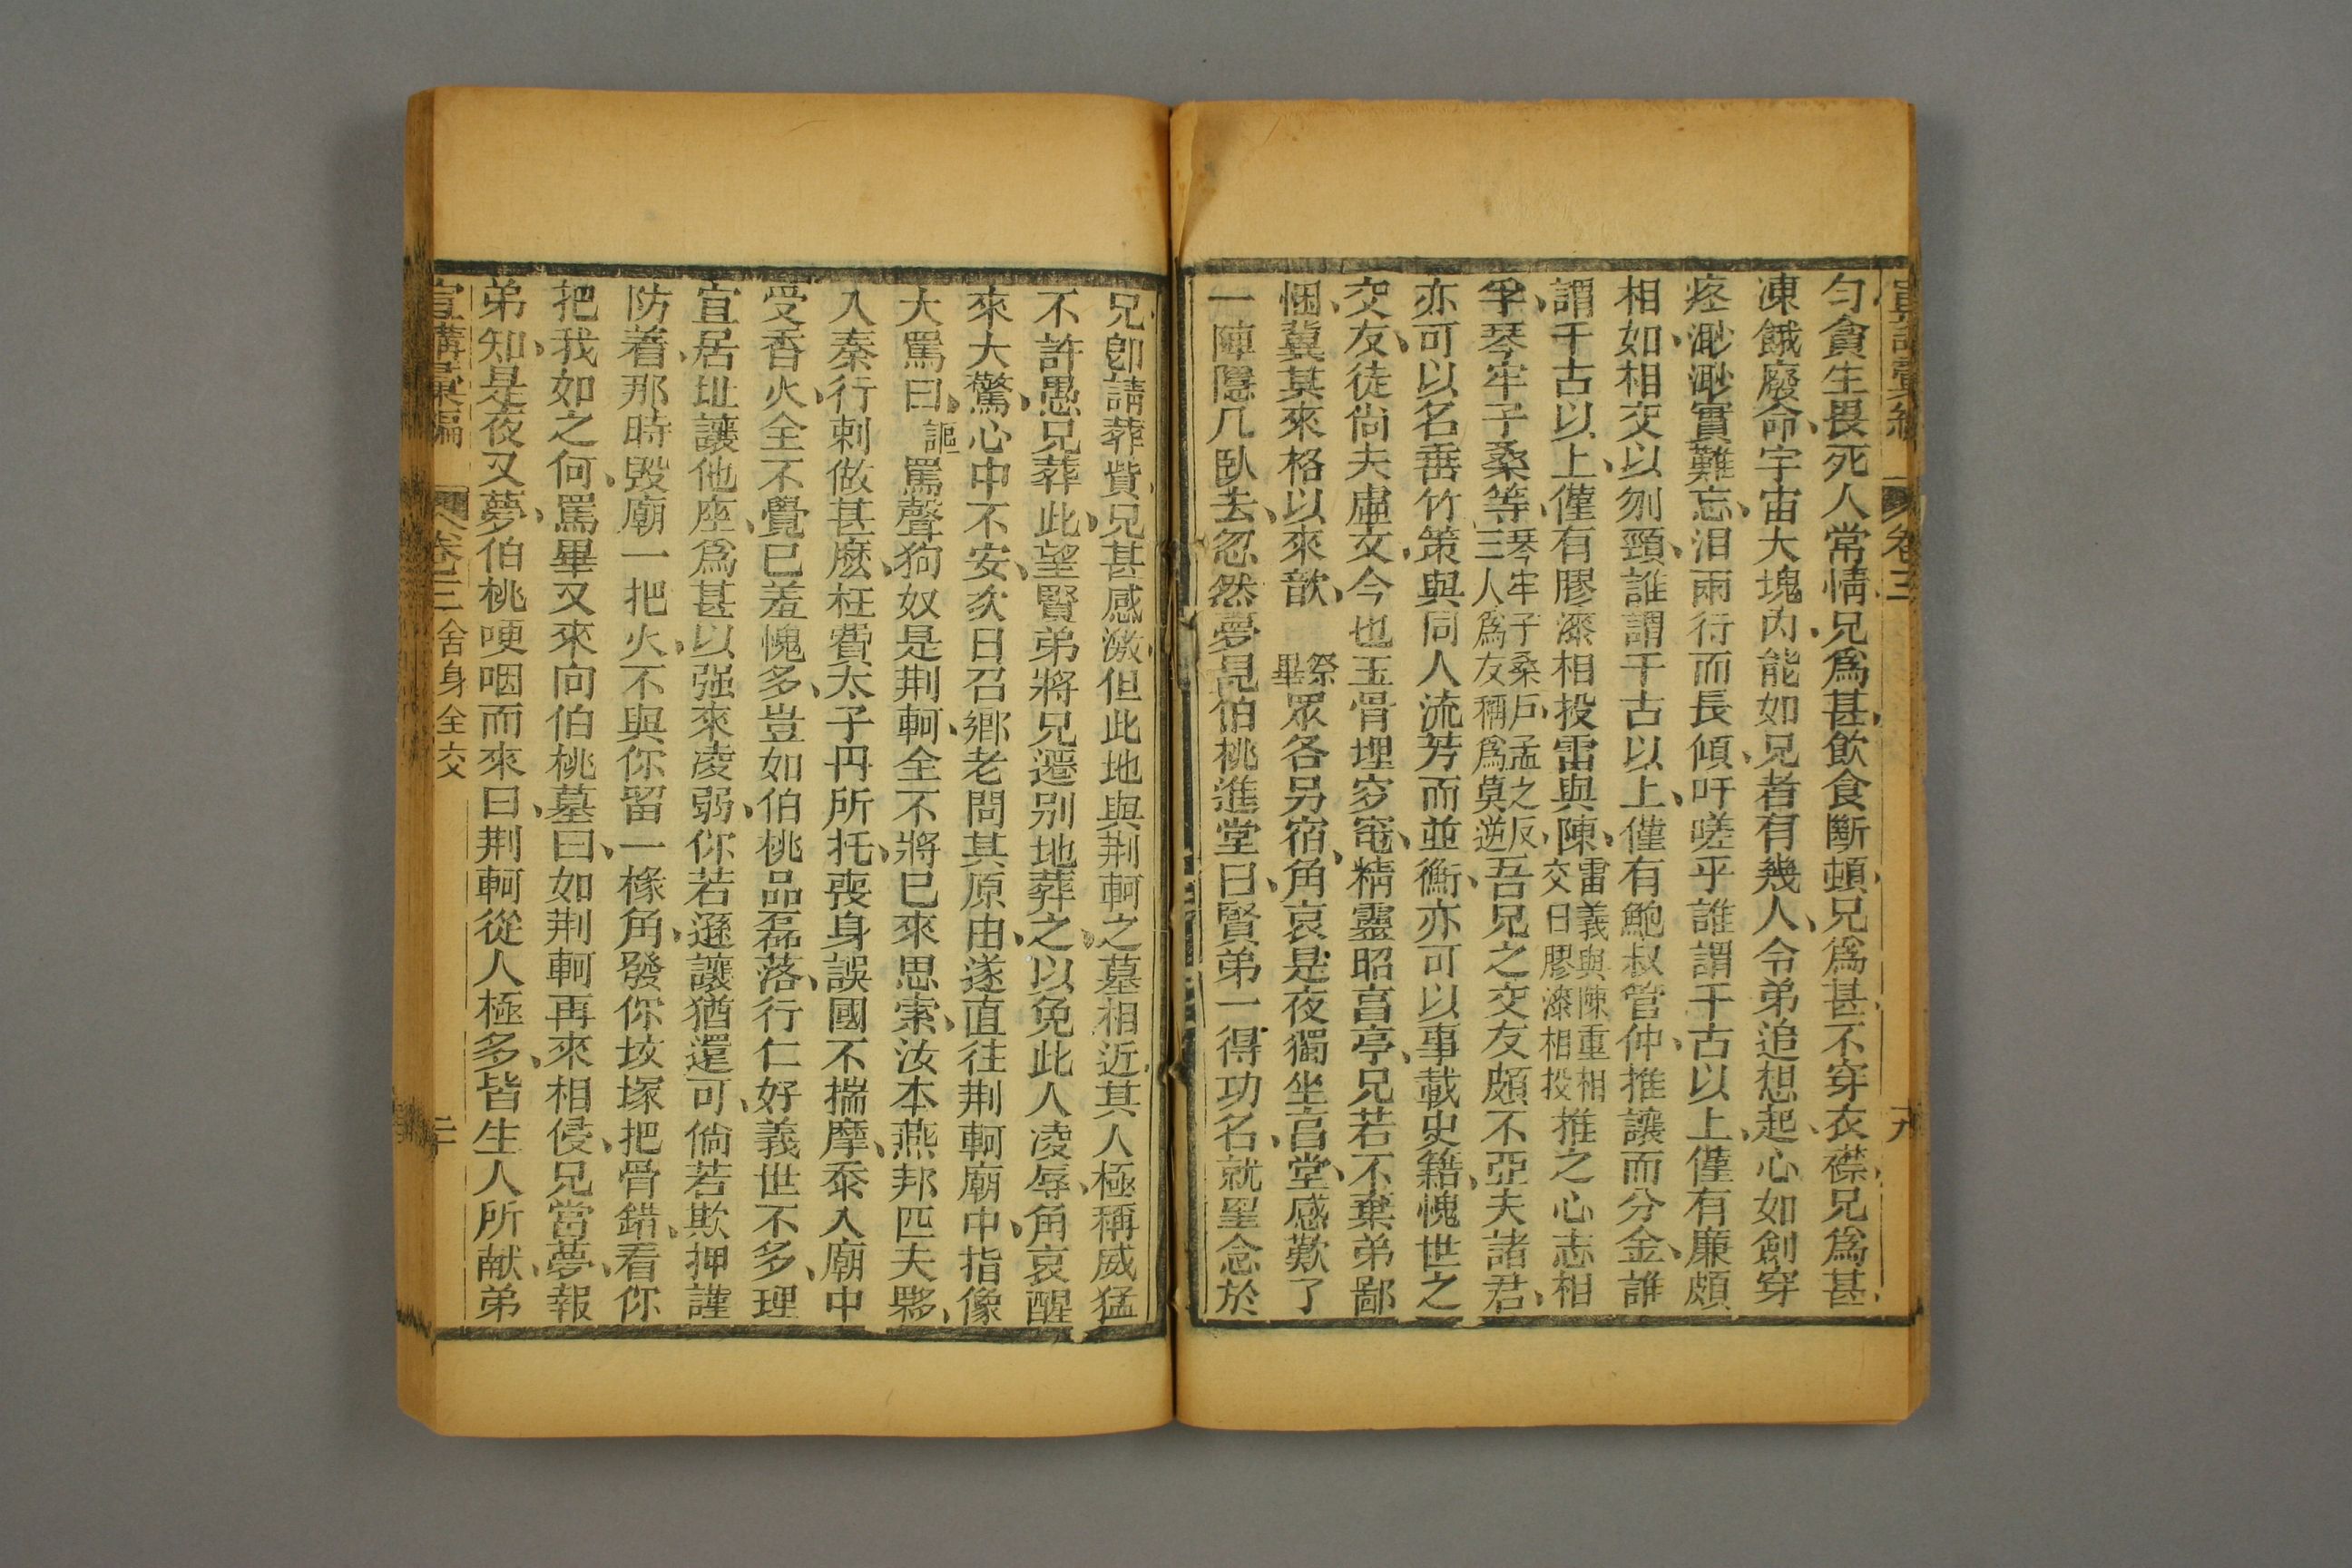 宣講彙編 卷三 十九
匀貪生畏死人常情兄爲甚飲食斷頓兄爲甚不穿衣襟兄爲甚
凍餓廢命宇宙大塊內能如兄者有幾人令弟追想起心如創穿
疼渺渺實難忘泪雨行而長傾吁嗟乎誰謂千古以上僅有廉頗
相如相交以刎頸誰謂千古以上僅有鮑叔管仲推讓而分金誰
謂千古以上僅有膠漆相投雷與陳雷義與陳重相交曰膠漆相投推之心志相
孚琴牢子桑等琴牢子桑戶孟之反三人爲友稱爲莫逆吾兄之交友頗不亞夫諸君
亦可以名垂竹策與同人流芳而並衡亦可以事載史籍愧世之
交友徒尙夫虛文今也玉骨埋穸窀精靈昭亯亭兄若不棄弟鄙
悃冀其來格以來歆祭畢眾各另宿角哀是夜獨坐亯堂感歎了
一陣隱几臥去忽然夢見伯桃進堂曰賢弟一得功名就里念於
兄卽請葬貲兄甚感激但此地與荆軻之墓相近其人極稱威猛
不許愚兄葬此望賢弟將兄遷别地葬之以免此人凌辱角哀醒
來大驚心中不安次日召鄉老問其原由遂直往荆軻廟中指像
大罵曰謳罵聲狗奴是荆軻全不將已來思索汝本燕邦匹夫夥
入秦行刺做甚麽枉費太子丹所托喪身誤國不揣摩忝入廟中
受香火全不覺已羞愧多豈如伯桃品磊落行仁好義世不多理
宜居址讓他座爲甚以强來凌弱你若遜讓猶還可倘若欺押謹
防着那時毀廟一把火不與你留一椽角發你坟塚把骨錯看你
把我如之何罵畢又來向伯桃墓曰如荆軻再來相侵兄當夢報
弟知是夜又夢伯桃哽咽而來曰荆軻從人極多皆生人所献弟
宣講彙編 卷三 舍身全交 二十